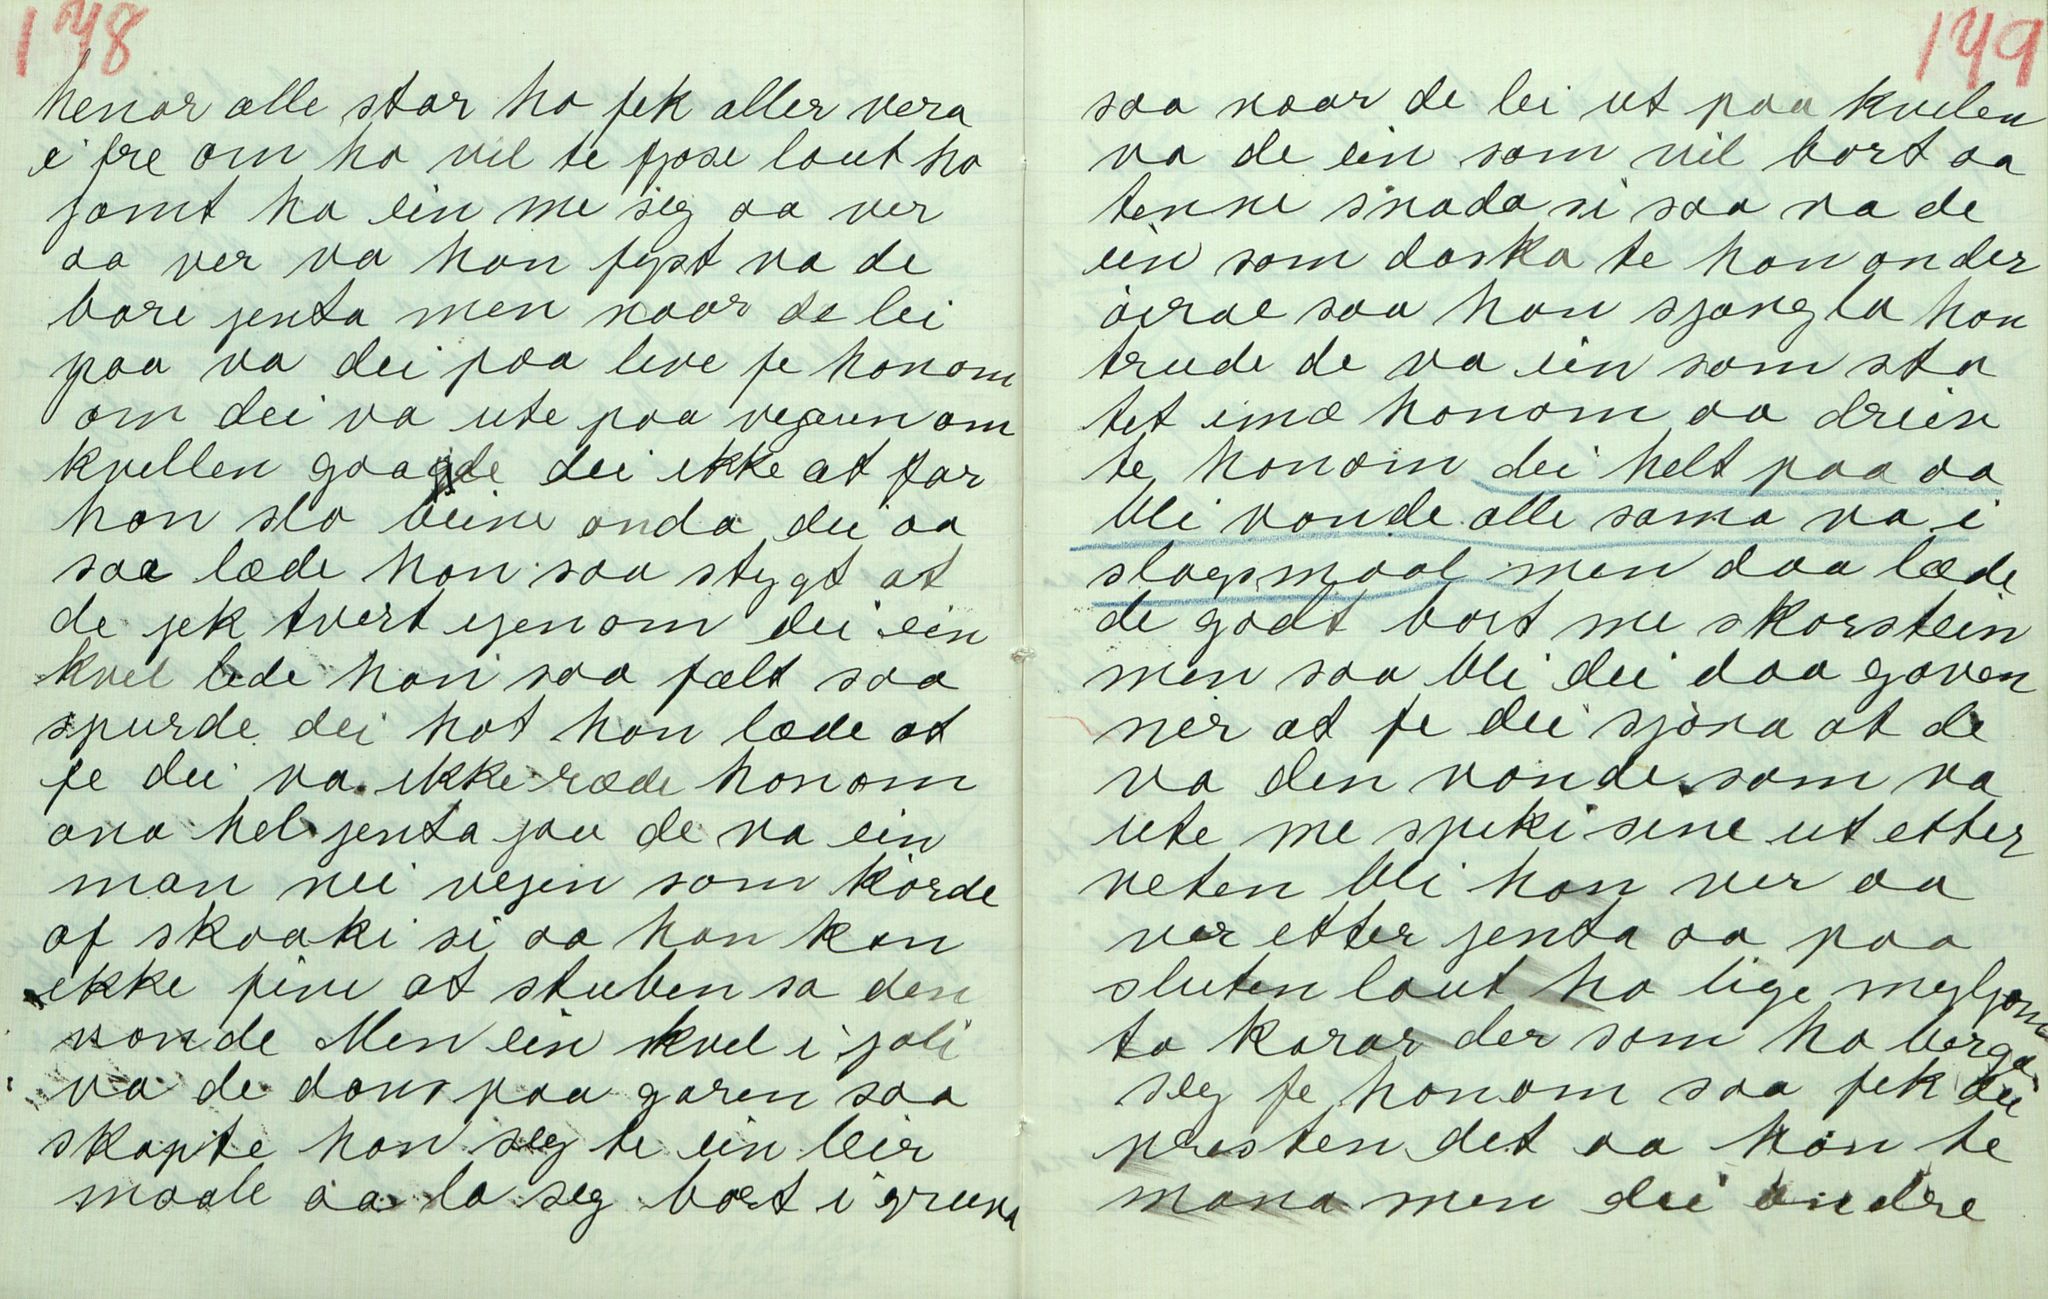 148
henar alle star ho fek aller vera
i fre om ho vil te fjose laut ho
jamt ha ein me seg aa ver
aa ver va han fyst va de
bare jenta men naar de lei
paa va dei paa leve fe honom
om dei va ute paa vegeen om
kvellen gaagde dei ikke at far
han slo beine onda dei aa
saa læde han saa stygt at
de jek tvert igenom dei ein
kvel lede han saa fælt saa
spurde dei hot han læde at
fe dei va ikke ræde honom
ana hel jenta jau de va ein
man nei vegen som körde
af skaaki si aa han kan
ikke fine at stuben sa den
vonde Men ein kvel i joli
va de dans paa garen saa
skapte han seg te ein leir
maale aa la seg bort i gruva
149
saa naar de lei ut paa kvelen
va de ein som vil bort aa
tenne snada si saa va de
ein som daska te han onder
öirae saa han sjangla han
trude de va ein som sta
tet imo honom aa drein
te honom dei helt paa aa
bli vonde alle sama va i
slagsmaal men daa læde
de godt bort me skorstein
men saa bli dei daa gaven
ner at fe dei sjöna at de
va den vonde som va
ute me spiki sine ut etter
veten bli han ver aa
ver etter jenta aa paa
sluten laut ho lige myljom
to karar der som ho berga
seg fe honom saa fek dei
presten det aa hån te
mana men dei andre